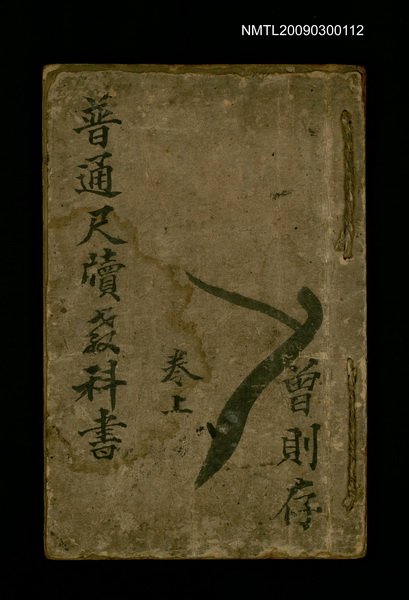 NMTL20090300112
普通尺牘教科書
卷上
曾則存